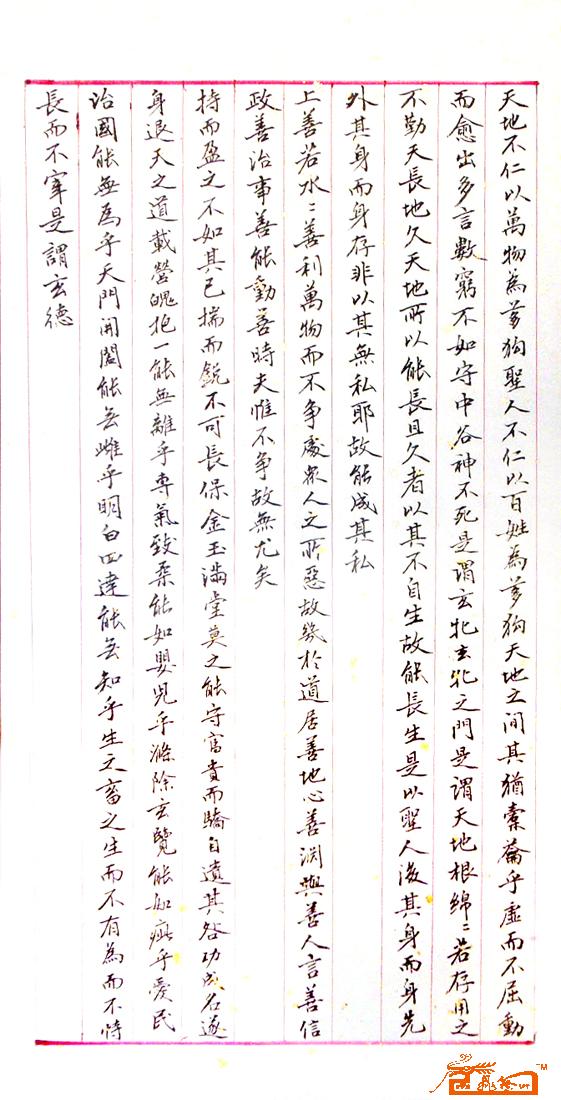 天地不仁以萬物為芻狗聖人不仁以百姓為芻狗天地之间其猶橐籥乎虛而不屈動
而愈出多言數窮不如守中谷神不死是謂玄牝玄牝之門是謂天地根綿〻若存用之
不勤天長地久天地所以能長且久者以其不自生故能長生是以聖人後其身而身先
外其身而身存非以其無私耶故能成其私
上善若水〻善利萬物而不争處眾人之所惡故幾於道居善地心善渊與善人言善信
政善治事善能動善時夫惟不争故無尤矣
持而盈之不如其已揣而銳不可長保金玉滿堂莫之能守富貴而驕自遺其咎功成名遂
身退天之道載營魄抱一能無離乎專氣致柔能如嬰兒乎滌除玄覽能如疵乎愛民
治國能無為乎天門開闔能无雌乎明白四達能无知乎生之畜之生而不有為而不恃
長而不宰是謂玄德